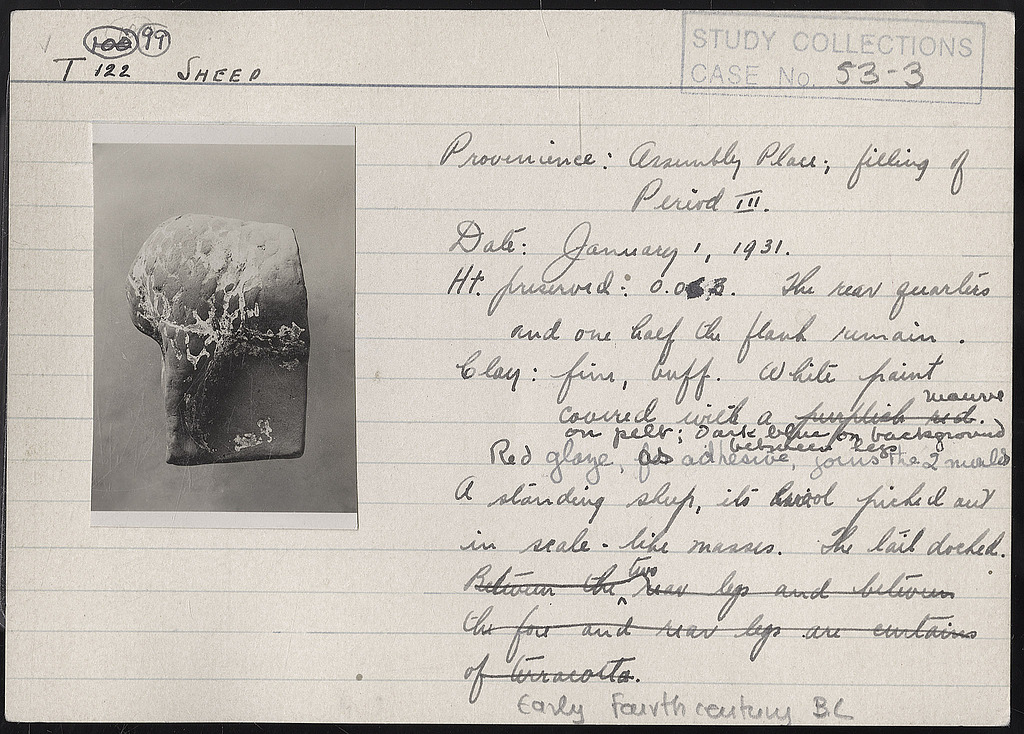 100 99
STUDY COLLECTIONS
CASE No. 53-3
T 122 SHEEP
Provenience: Assembly Place; filling of
Period III.
Date: January 1, 1931.
Ht. preserved: 0.063. The rear quarters
and one half the flank remain.
Clay: fine, buff. White paint
mauve
covered with a purplish red.
on pelt; Dark blue on background
between legs
Red glaze, as adhesive, joins the 2 moulds
A standing sheep, its wool picked out
in scale-like masses. The tail docked.
Between the two rear legs and between
the fore and rear legs are curtains
of terracotta.
Early Fourth century B.C